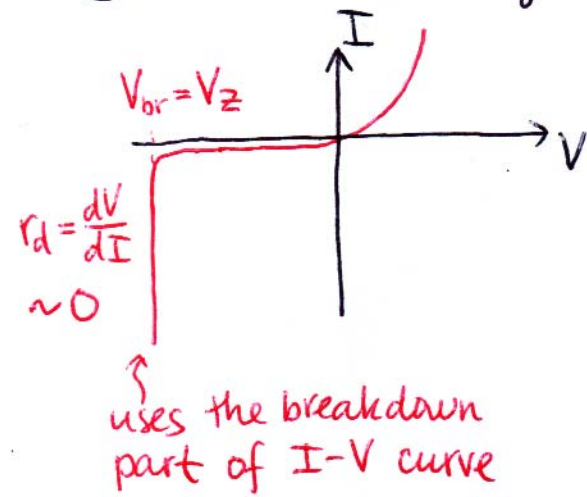 I
V_br = V_Z
V
r_d = dV/dI
~0
uses the breakdown
part of I-V curve